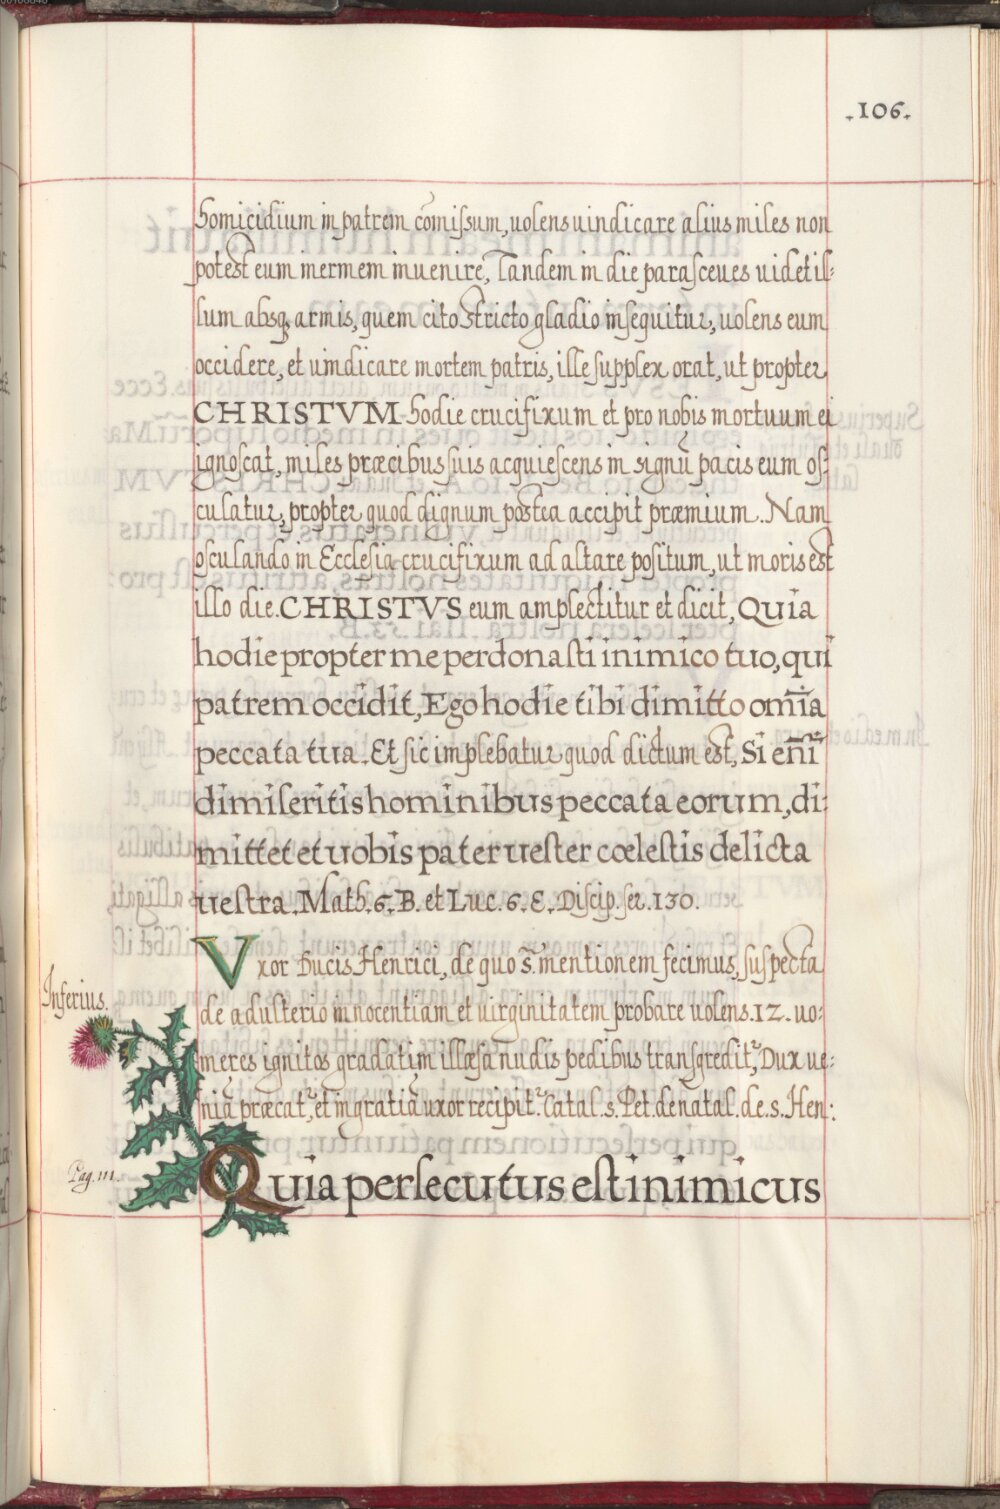 .106.
homicidium in patrem cōmiſsum, uolens uindicare alius miles non
potest eum inermem inuenire, Tandem in die paraſceues uidet il-
lum absq; armis, quem cito stricto gladio inſequitur, uolens eum
occidere, et uindicare mortem patris, ille ſupplex orat, ut propter
CHRISTVM hodie crucifixum et pro nobis mortuum ei
ignoſcat, miles præcibus ſuis acquieſcens in signū pacis eum oſ-
culatur, propter quod dignum postea accipit præmium. Nam
osculando in Eccleſia crucifixum ad altare poſitum, ut moris est
illo die. CHRISTVS eum amplectitur et dicit, Quia
hodie propter me perdonaſti inimico tuo, qui
patrem occidit, Ego hodie tibi dimitto omīa
peccata tua. Et ſic implebatur quod dictum est, Si enī
dimiſeritis hominibus peccata eorum, di:
mittet et uobis pater ueſter cœleſtis delicta
ueſtra. Math. 6. B. et Luc. 6. E. Diſcip. ſer. 130.
Vxor Ducis Henrici, de quo s̄. mentionem fecimus, ſuſpecta
Inferius.
de adulterio innocentiam et uirginitatem probare uolens. 12. uo:
meres ignitos gradatim illæſa nudis pedibus tranſgredit, Dux ue:
niā præcat, et in gratiā uxor recipit. Catal. s. Pet. de natal. de. s. Hen:
Pag. 111.
Quia perſecutus eſt inimicus